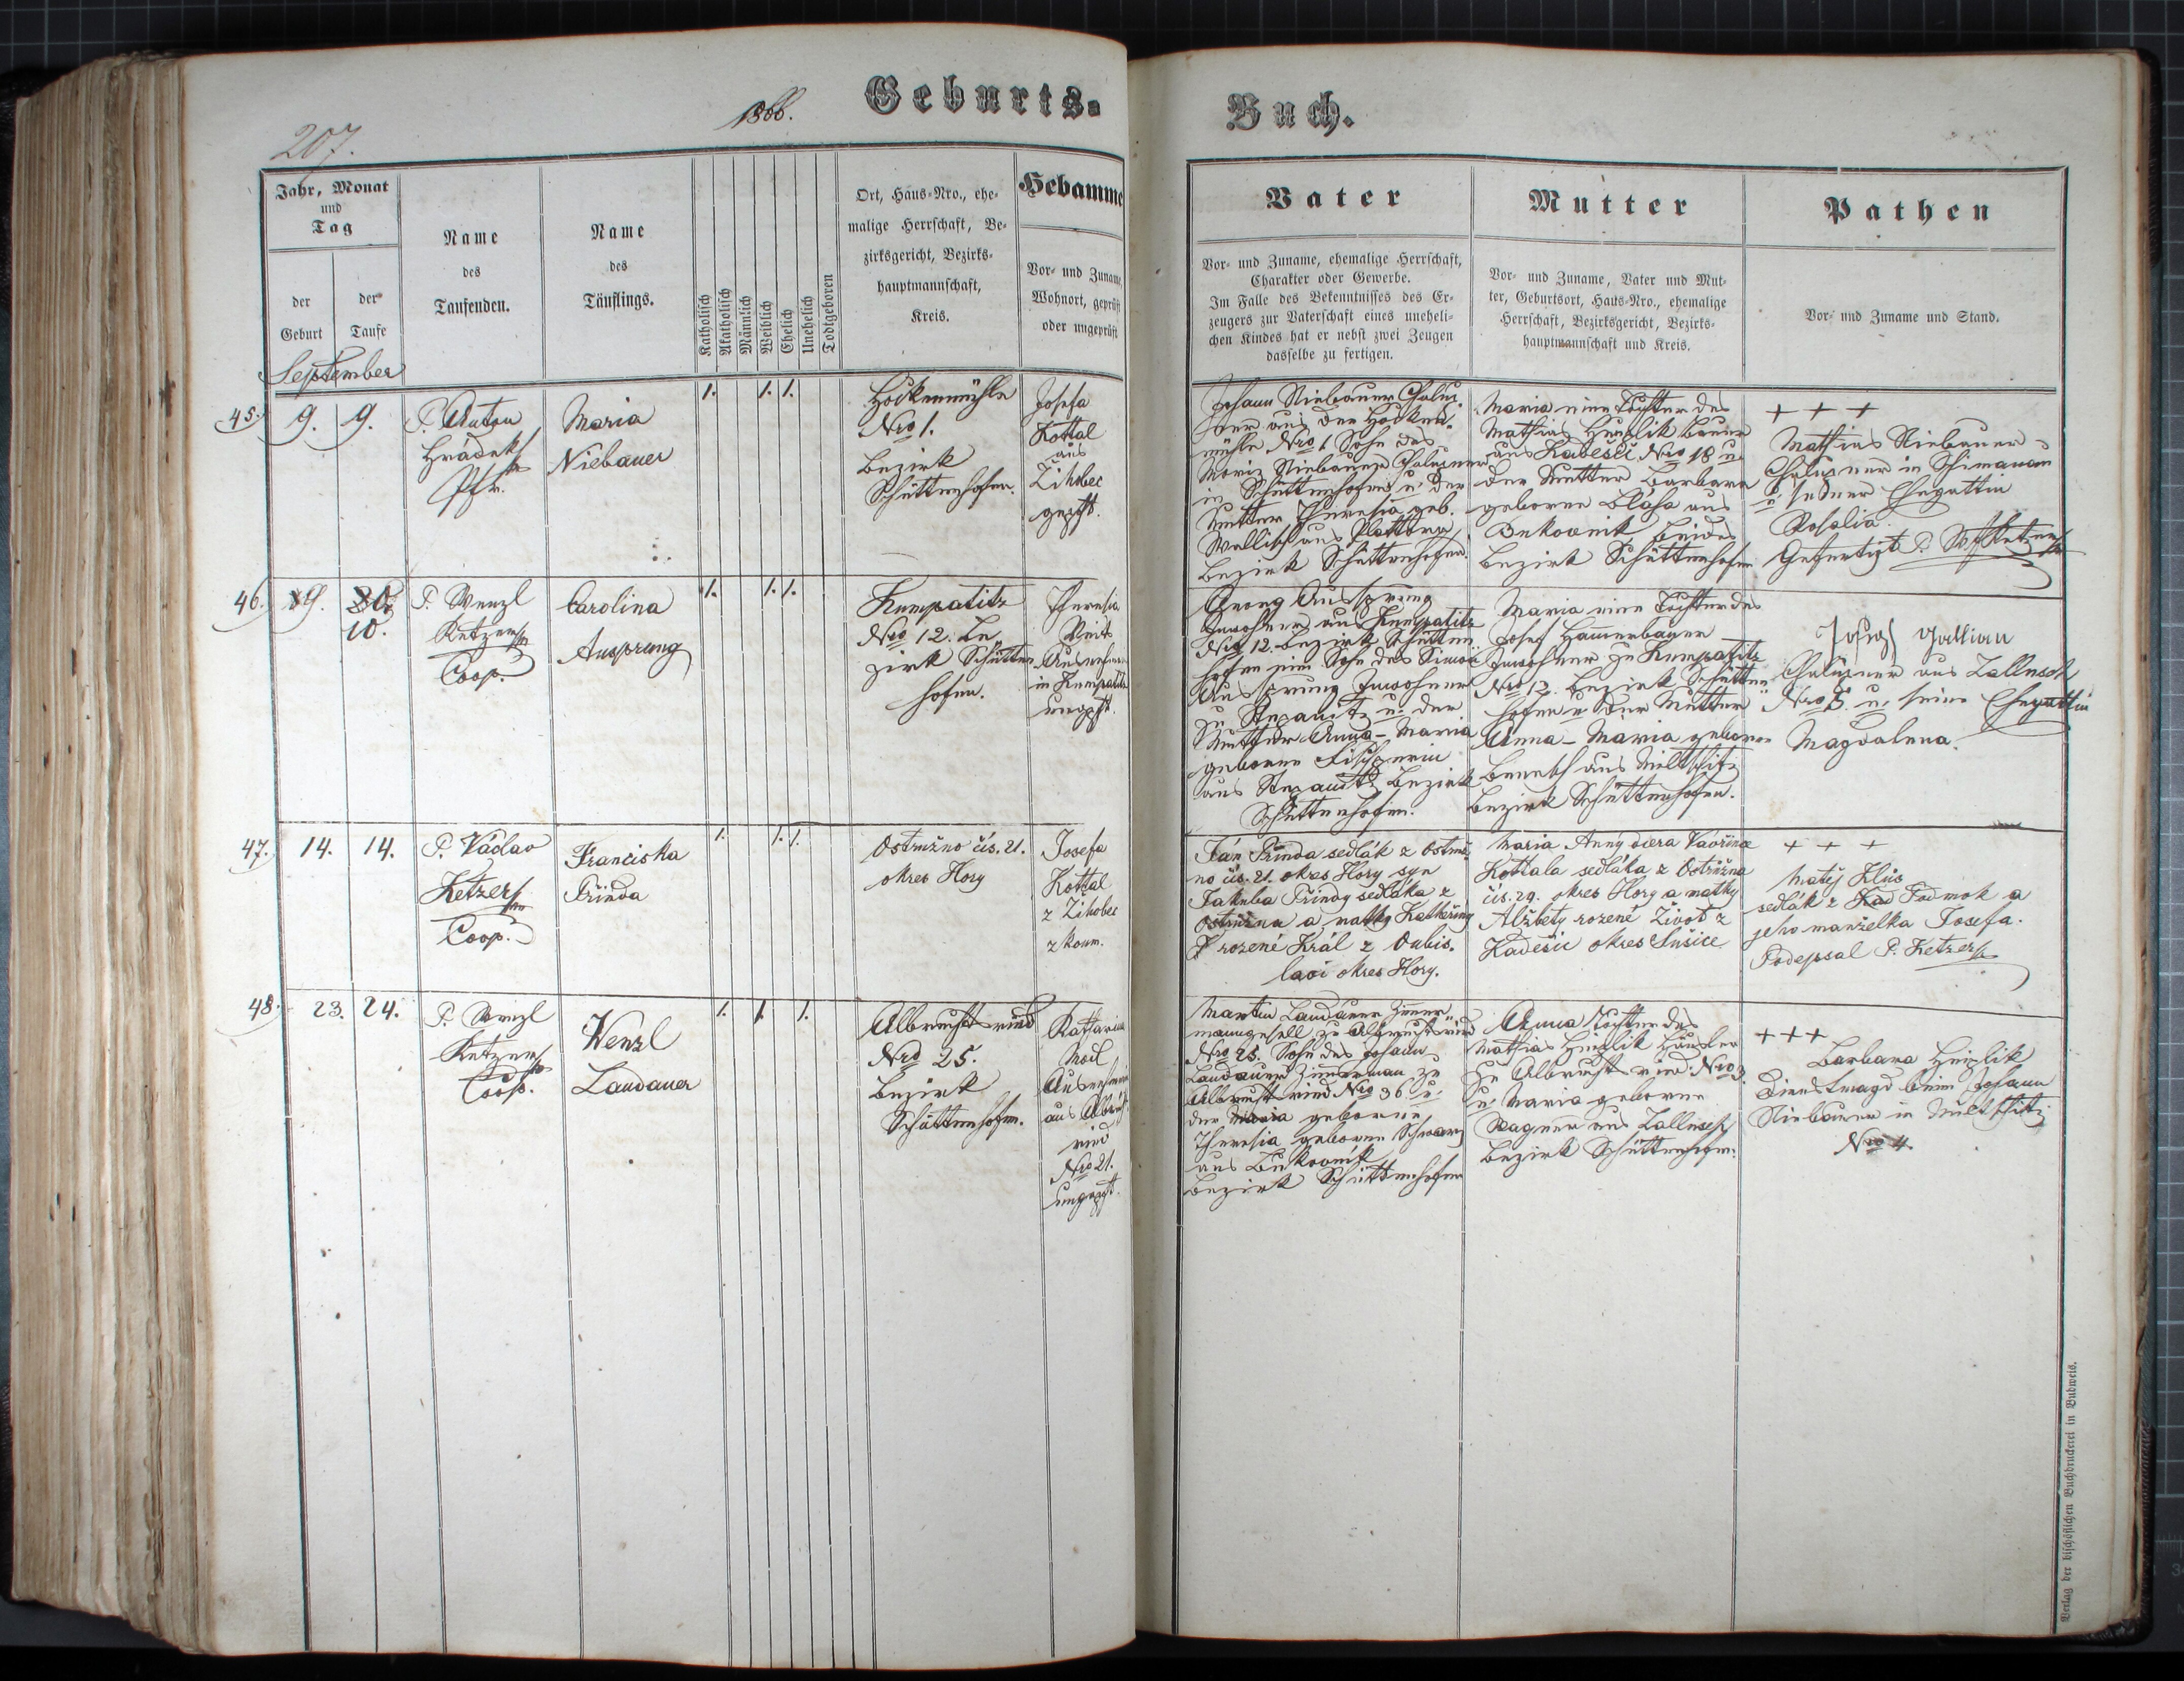 207.
1866.
Geburts-
Buch.
Jahr, Monat
und
Tag
der
Geburt
der
Taufe
Name
des
Taufenden.
Name
des
Täuflings.
Katholisch
Akatholisch
Männlich
Weiblich
Ehelich
Unehelich
Todtgeboren
Ort, Haus-Nro., ehe-
malige Herrschaft, Be-
zirksgericht, Bezirks-
hauptmannschaft,
Kreis.
Hebamme
Vor- und Zuname,
Wohnort, geprüft
oder ungeprüft
Vater
Vor- und Zuname, ehemalige Herrschaft,
Charakter oder Gewerbe.
Im Falle des Bekenntnisses des Er-
zeugers zur Vaterschaft eines uneheli-
chen Kindes hat er nebst zwei Zeugen
dasselbe zu fertigen.
Mutter
Vor- und Zuname, Vater und Mut-
ter, Geburtsort, Haus-Nro., ehemalige
Herrschaft, Bezirksgericht, Bezirks-
hauptmannschaft und Kreis.
Pathen
Vor- und Zuname und Stand.
September
45. 9. 9.
P. Anton
Hrádek
Pfr.
Maria
Niebauer
1. 1. 1.
Hockenmühle
Nro 1.
Bezirk
Schüttenhofen.
Josefa
Kottal
aus
Zihobec
gepft.
Johann Niebauer Chalup-
ner aus der Hocken-
mühle Nro 1 Sohn des
Moriz Niebauer Chalupner
in Schüttenhofen u. der
Mutter Theresia geb.
Wallisch aus Plattorn
Bezirk Schüttenhofen.
Maria eine Tochter des
Mathias Hunzlik Bauer
aus Kadešić Nro 18 u.
der Mutter Barbara
geborne Bláha aus
Bukovnik beides
Bezirk Schüttenhofen
+ + +
Mathias Niebauer
Chalupner in Schimanau
u. seiner Ehegattin
Rosalia.
Gefertigt P. W. Ketzer
46. 9. 10.
P. Wenzl
Ketzer
Coop.
Carolina
Ausprung
1. 1. 1.
Kumpatitz
Nro 12. Be
zirk Schütten
hofen.
Theresia
Veits
in Kumpatitz
ungpft.
Georg Aussprung
Inwohner aus Kumpatitz
Nro 12. Bezirk Schütten
hofen ein Sohn des Simon
Aussprung Inwohner
zu Stepanitz u. der
Mutter Anna-Maria
geborne Fischerin
aus Stepanitz Bezirk
Schüttenhofen.
Maria eine Tochter des
Josef Hamerbauer
Inwohner zu Kumpatitz
Nro 12. Bezirk Schütten
hofen u. der Mutter
Anna-Maria geborne
aus Miltschitz
Bezirk Schüttenhofen.
Josef Gallian
Chalupner aus Zallusch
Nro 5 u. seine Ehegattin
Magdalena.
47. 14. 14.
P. Václav
Ketzer
Coop.
Franciska
Přinda
1. 1. 1.
Ostružno čís. 21.
okres Hory
Josefa
Kottal
z Zihobec
zkoum.
Ján Přinda sedlák z Ostruž-
no čís. 21. okres Hory syn
Jakuba Přindy sedláka z
Ostružna a matky Katheřiny
rozené Král z Dobis-
lavi okres Hory.
Maria Anny dcera Vavřína
Kottala sedláka z Ostružna
čís. 29. okres Hory a matky
Alžbety rozené Život z
Kadešic okres Sušice
+ + +
Matěj Klůs
sedlák z Kad Podmok a
jeho manželka Josefa.
Podepsal P. Ketzer
48. 23. 24.
P. Wenzl
Ketzer
Coop.
Wenzl
Landauer
1. 1. 1.
Albrechtsried
Nro 25.
Bezirk
Schüttenhofen.
Katharina
aus Albrechts
ried
Nro 21.
ungepft.
Martin Landauer Zimmer-
manngesell zu Albrechtsried
Nro 25. Sohn des Johann
Landauer Zimmerman zu
Albrechtsried Nro 36 u.
der Maria geborne
Theresia geborne Schwarz
aus Bukovnik
Bezirk Schüttenhofen
Anna Tochter des
Mathias Hunzlik Häusler
zu Albrechtsried Nro 3
u. Maria geborne
Wagner aus Zallusch
Bezirk Schüttenhofen.
+++
Barbara Hunzlik
Dienstmagd beim Johann
Niebauer in Miltschitz
Nro 4.
Verlag der bischöflichen Buchdruckerei in Budweis.